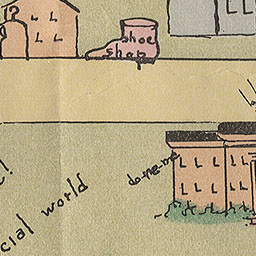 shoe
shop
do-me-me
cial world